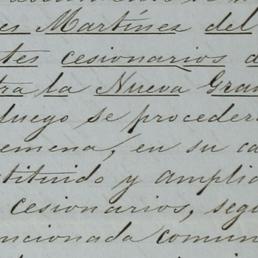 es Martinez del
tes cesionarios d
tra la Nueva Gran
luego se proceder
emena, en su ca
tituido y amplia
cesionarios, segu
ncionada comun